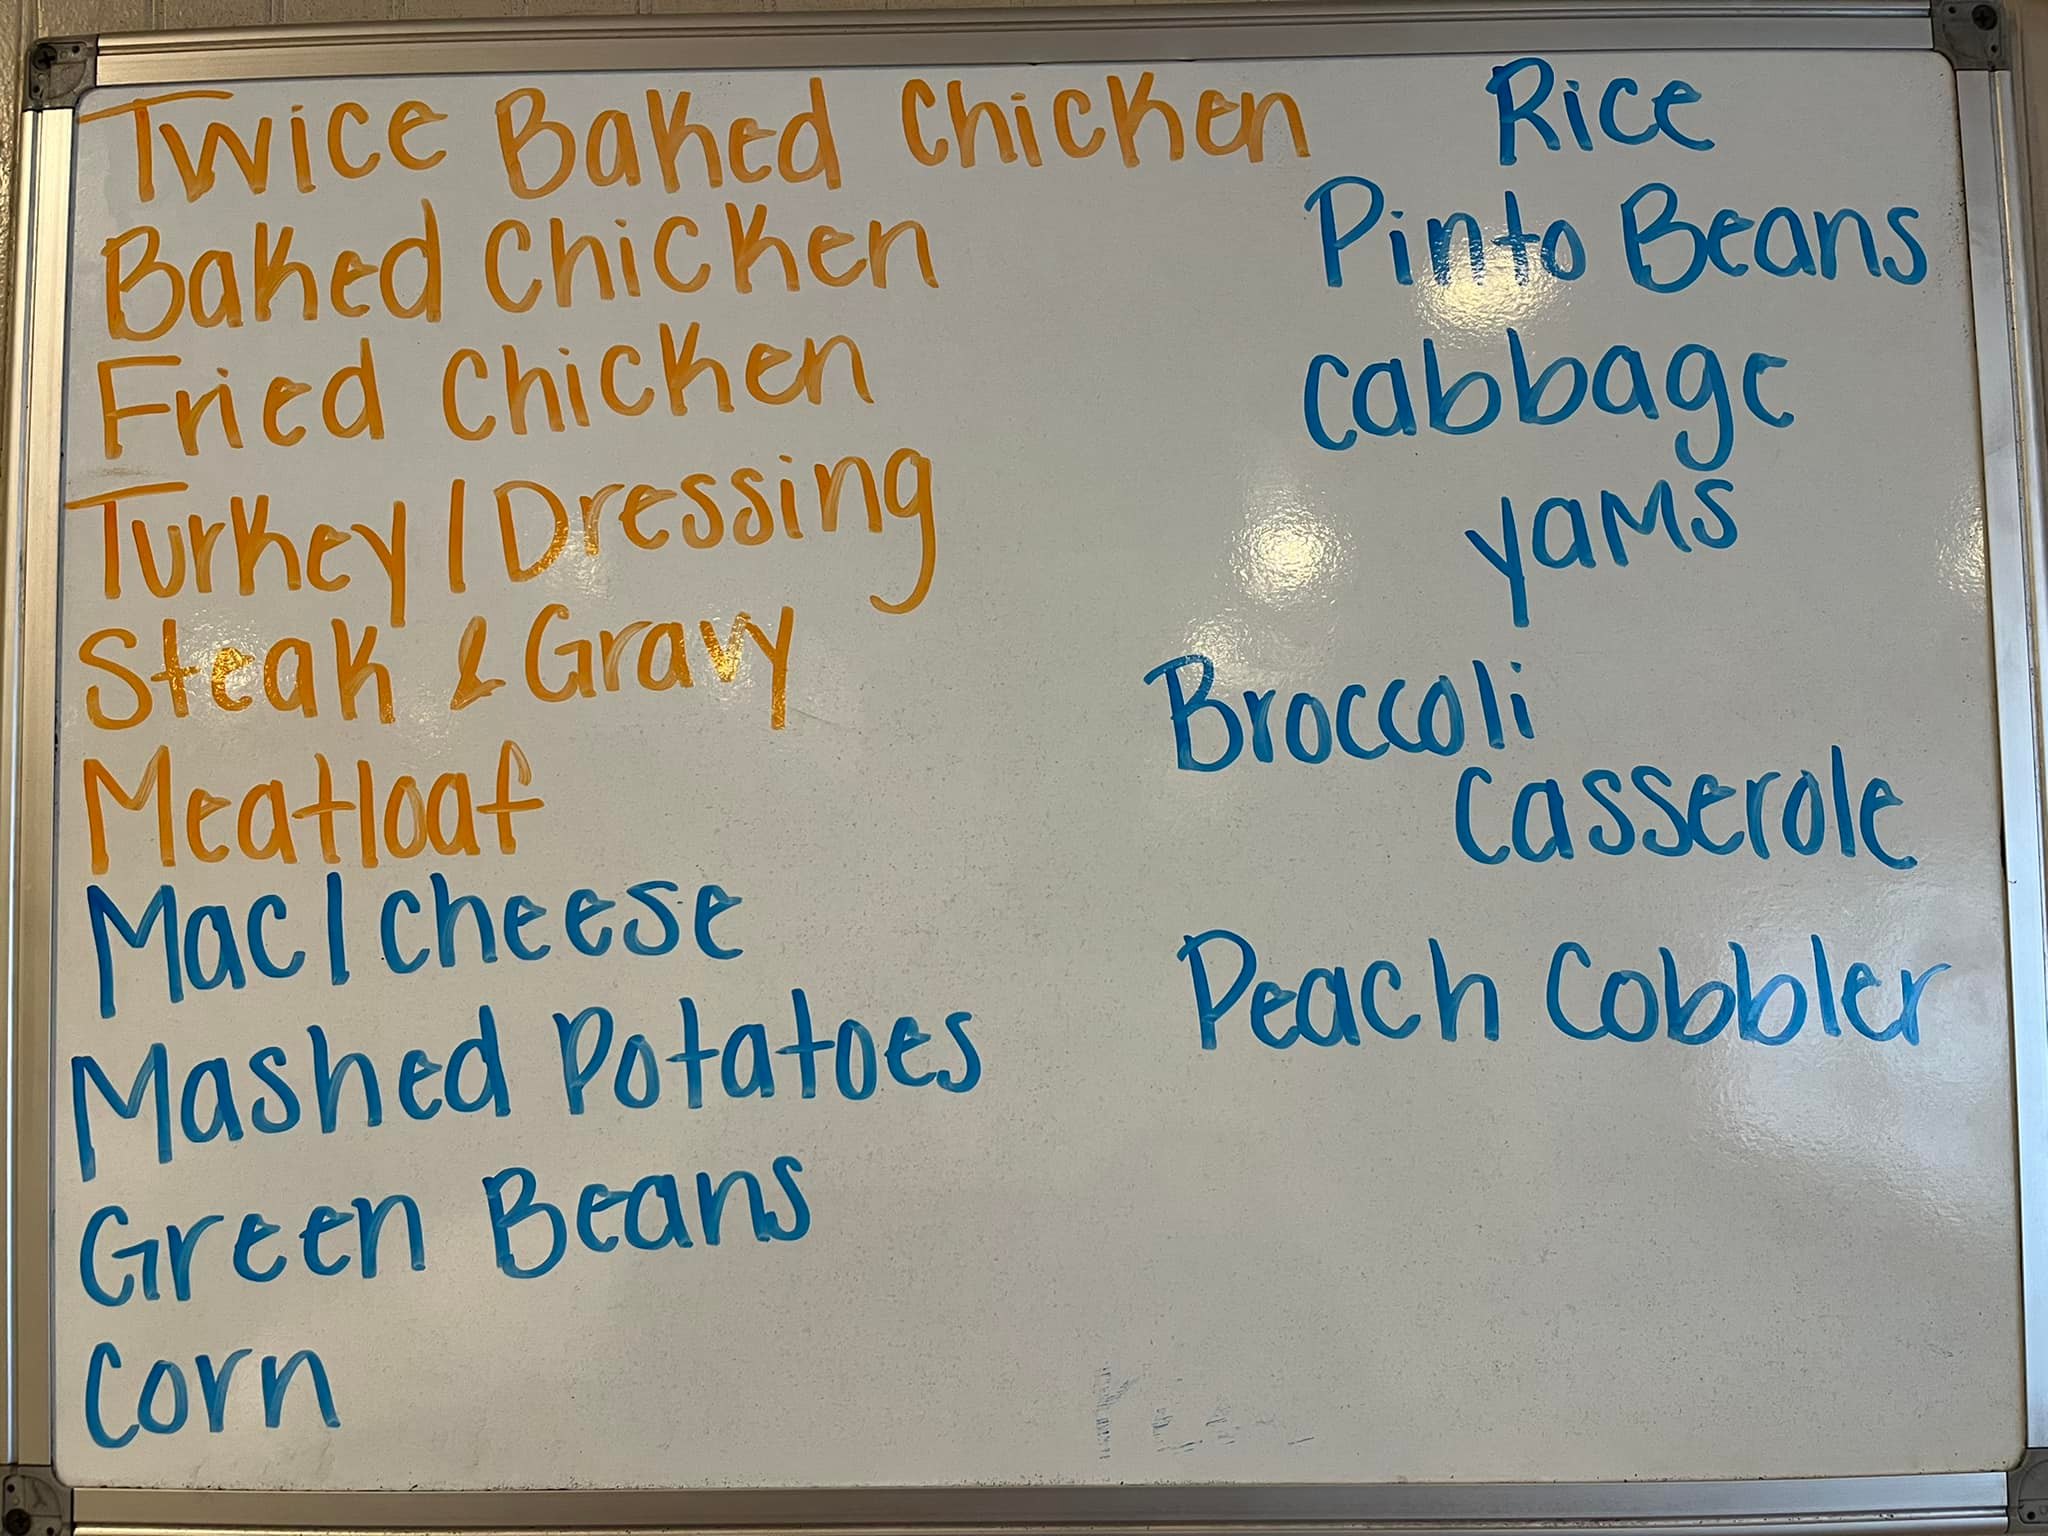 Twice Baked Chicken
Baked Chicken
Fried Chicken
Turkey / Dressing
Steak & Gravy
Meatloaf
Mac / Cheese
Mashed Potatoes
Green Beans
Corn
Rice
Pinto Beans
Cabbage
Yams
Broccoli
Casserole
Peach Cobbler